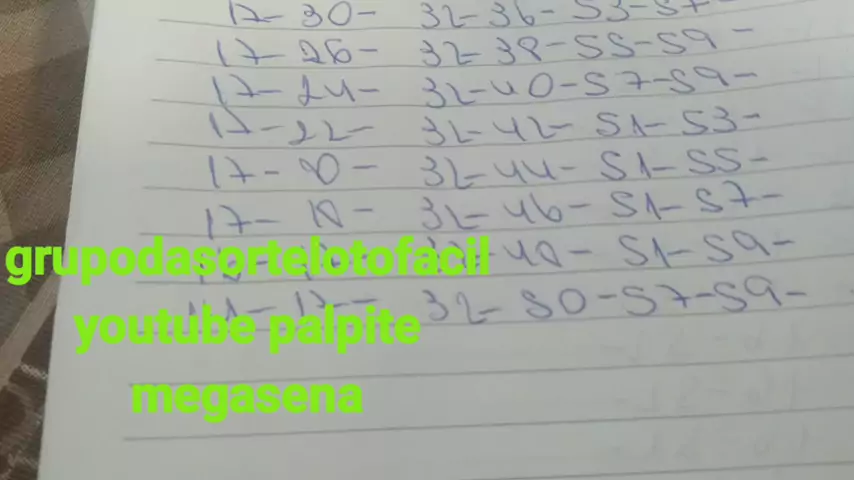 17- 30- 32-36-53-57-
17-26- 32-38-55-59-
17-24- 32-40-57-59-
17-22- 32-42-51-53-
17-20- 32-44-51-55-
17-18- 32-46-51-57-
32-48-51-59-
17- 32-50-57-59-
grupodasortelotofacil
youtube palpite
megasena